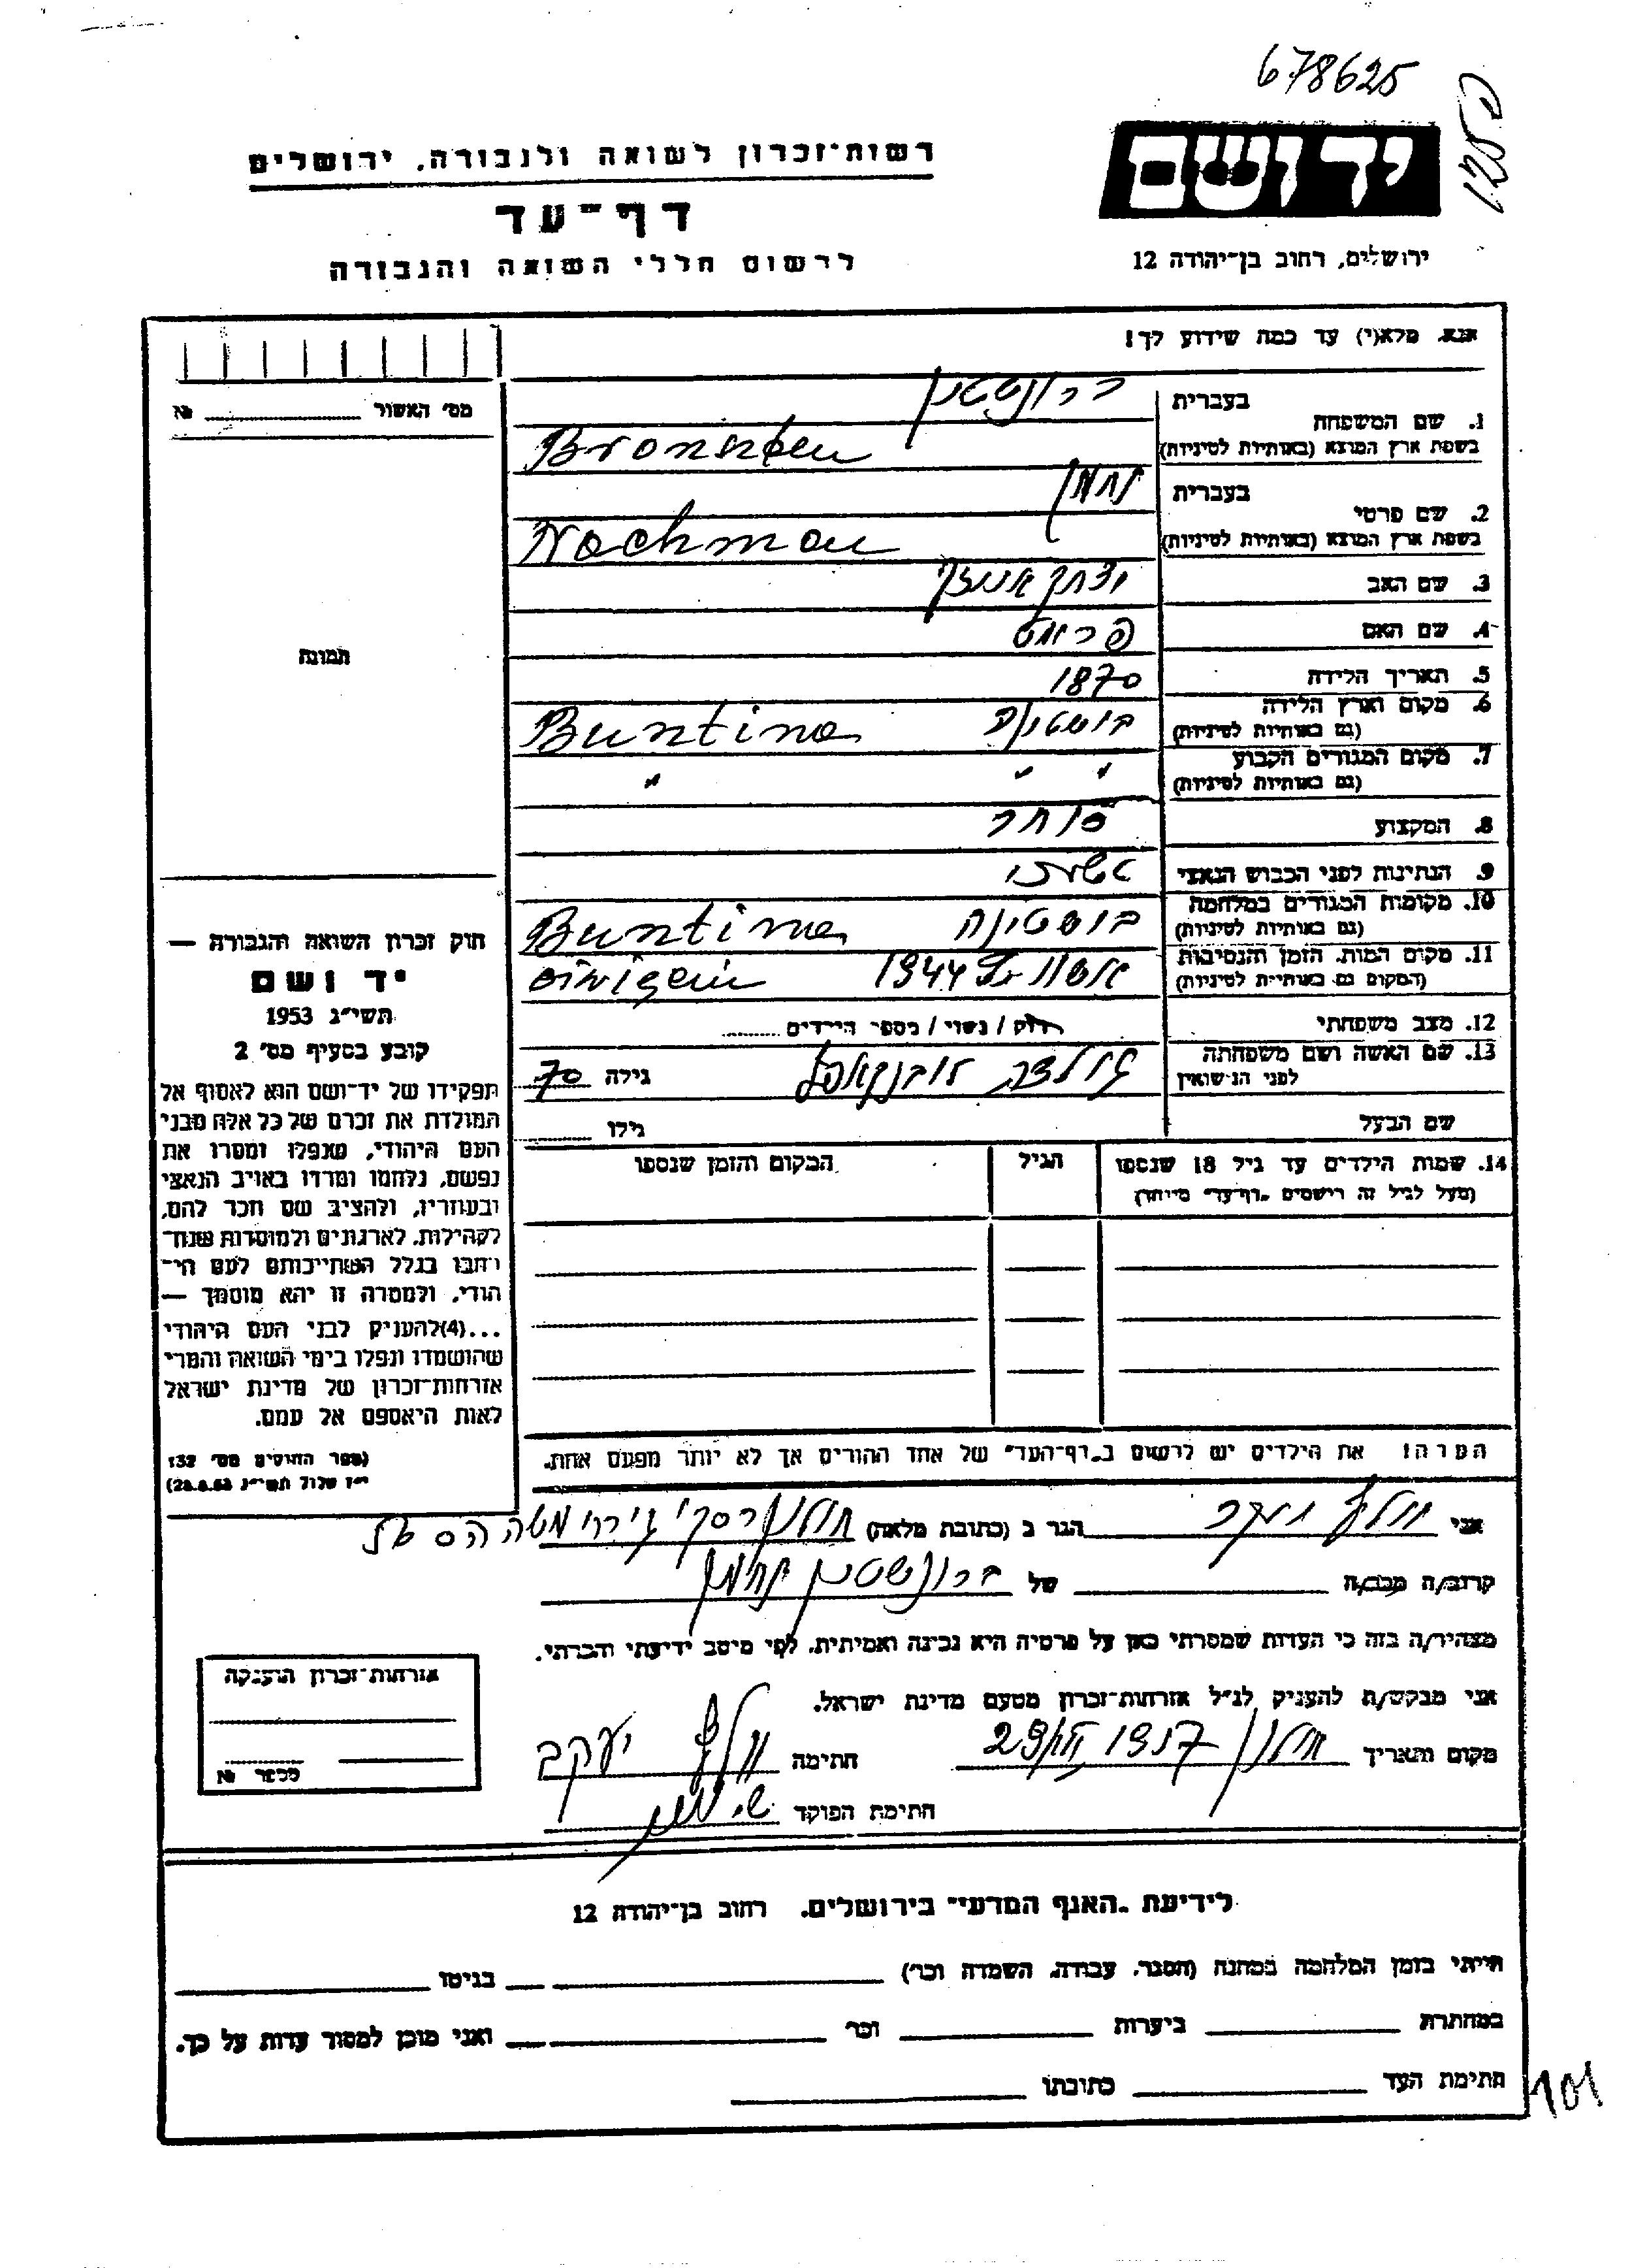 678625
יד ושם
רשות־זכרון לשואה ולגבורה, ירושלים
דף־עד
לרשום חללי השואה והגבורה
ירושלים, רחוב בן־יהודה 12
אנא, מלא(י) עד כמה שידוע לך!
מס׳ האשור № 
1. שם המשפחה
בעברית ברונשטין
בשפת ארץ המוצא (באותיות לטיניות) Bronsztein
2. שם פרטי
בעברית נחמן
בשפת ארץ המוצא (באותיות לטיניות) Nachman
3. שם האב יצחק אייזיק
4. שם האם פרומט
5. תאריך הלידה 1870
6. מקום וארץ הלידה
(גם באותיות לטיניות) Buntina
7. מקום המגורים הקבוע
(גם באותיות לטיניות) " " "
8. המקצוע סוחר
9. הנתינות לפני הכבוש הנאצי
10. מקומות המגורים במלחמה
(גם באותיות לטיניות) Buntina
11. מקום המות, הזמן והנסיבות
(המקום גם באותיות לטיניות) 1944
12. מצב משפחתי רווק / נשוי / מספר הילדים
13. שם האשה ושם משפחתה
לפני הנישואין גילה 70
שם הבעל גילו
14. שמות הילדים עד גיל 18 שנספו הגיל המקום והזמן שנספו
(מעל לגיל זה רישמים „דף־עד" מיוחד)
תמונה
חוק זכרון השואה והגבורה —
יד ושם
תשי״ג 1953
קובע בסעיף מס׳ 2
תפקידו של יד־ושם הוא לאסוף אל
המולדת את זכרם של כל אלה מבני
העם היהודי, שנפלו ומסרו את
נפשם, נלחמו ומרדו באויב הנאצי
ובעוזריו, ולהציב שם וזכר להם,
לקהילות, לארגונים ולמוסדות שנח־
רבו בגלל השתייכותם לעם הי־
הודי, ולמטרה זו יהא מוסמך —
...(4)להעניק לבני העם היהודי
שהושמדו ונפלו בימי השואה והמרי
אזרחות־זכרון של מדינת ישראל
לאות היאספם אל עמם.
(ספר החוקים מס׳ 132
י״ז אלול תשי״ג 28.8.53)
הערה! את הילדים יש לרשום ב„דף־העד" של אחד ההורים אך לא יותר מפעם אחת.
אני וולף יעקב הגר ב (כתובת מלאה) חולון
קרוב/ה מכר/ה של ברונשטין נחמן
מצהיר/ה בזה כי העדות שמסרתי כאן על פרטיה היא נכונה ואמיתית, לפי מיטב ידיעתי והכרתי.
אני מבקש/ת להעניק לנ״ל אזרחות־זכרון מטעם מדינת ישראל.
מקום ותאריך חולון חתימה וולף יעקב
חתימת הפוקד
אזרחות־זכרון הוענקה
מספר №
לידיעת „האגף המדעי" בירושלים, רחוב בן־יהודה 12
הייתי בזמן המלחמה במחנה (הסגר, עבודה, השמדה וכו׳) בגיטו
במחתרת ביערות וכו׳ ואני מוכן למסור עדות על כך.
חתימת העד כתובתו
101